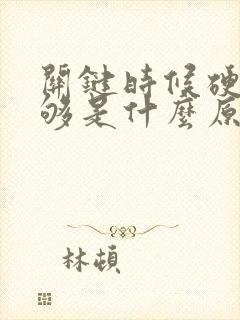 關鍵時候硬
够是什麼原
林頓